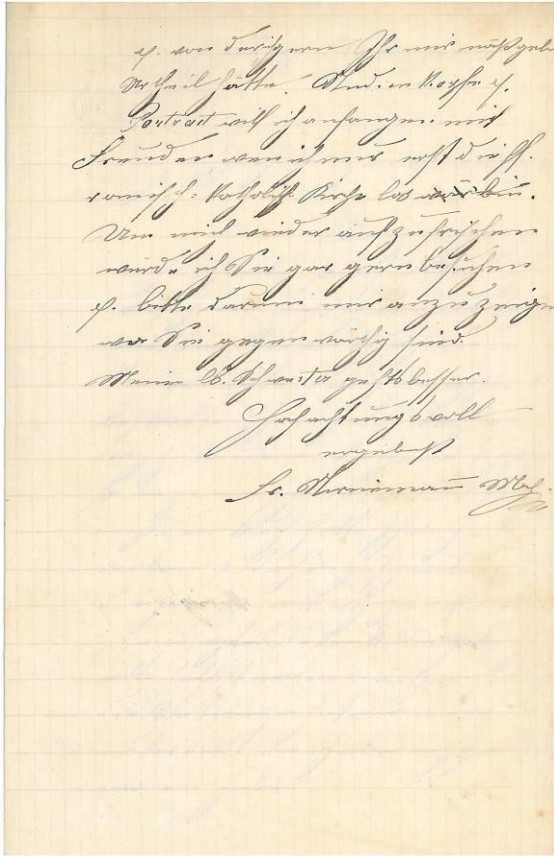 u. von derigem Ihr mir maßgeb
Urtheil hätte. Studienkopfe u.
Portrait will ich anfangen mit
Freuden wen ich nur erst die
römisch-katholisch. Kirche los bin.
Um mich wieder aufzufrischen
werde ich Sie gar gern besuchen
u. bitte darum mir anzuzeige
wo Sie gegenwärtig sind.
Meine lb. Schwester gehts besser.
Hochachtungsvoll
ergebenst
Fr. Mal.